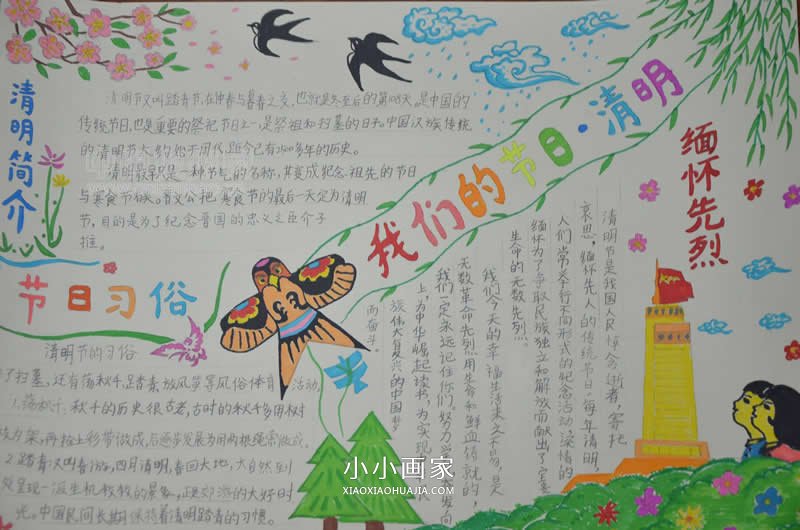 清明简介
清明节又叫踏青节,在仲春与暮春之交,也就是冬至后的第108天。是中国的
传统节日,也是重要的祭祀节日之一,是祭祖和扫墓的日子。中国汉族传统
的清明节大约始于周代,距今已有2500多年的历史。
清明最早只是一种节气的名称,其变成纪念祖先的节日
与寒食节有关。晋文公把寒食节的最后一天定为清明
节,目的是为了纪念晋国的忠义之臣介子
推。
我们的节日·清明
缅怀先烈
清明节是我国人民悼念逝者,寄托
哀思,缅怀先人的传统节日。每年清明,
人们常举行不同形式的纪念活动,深情的
缅怀为了争取民族独立和解放而献出了宝贵
生命的无数先烈。
我们今天的幸福生活来之不易,是
无数革命先烈用生命和鲜血铸就的,
我们一定永远记住你们。努力学习
上,为中华崛起读书,为实现
族伟大复兴的中国梦
而奋斗。
节日习俗
清明节的习俗
了扫墓,还有荡秋千、踏青、放风筝等风俗体育活动。
1.荡秋千:秋千的历史很古老,古时的秋千多用树
为架,再拴上彩带做成,后逐步发展为用两根绳索做成。
2.踏青又叫春游,四月清明,春回大地,大自然到
处呈现一派生机勃勃的景象,正是郊游的大好时
光。中国民间长期保持着清明踏青的习惯。
小小画家
XIAOXIAOHUAJIA.COM